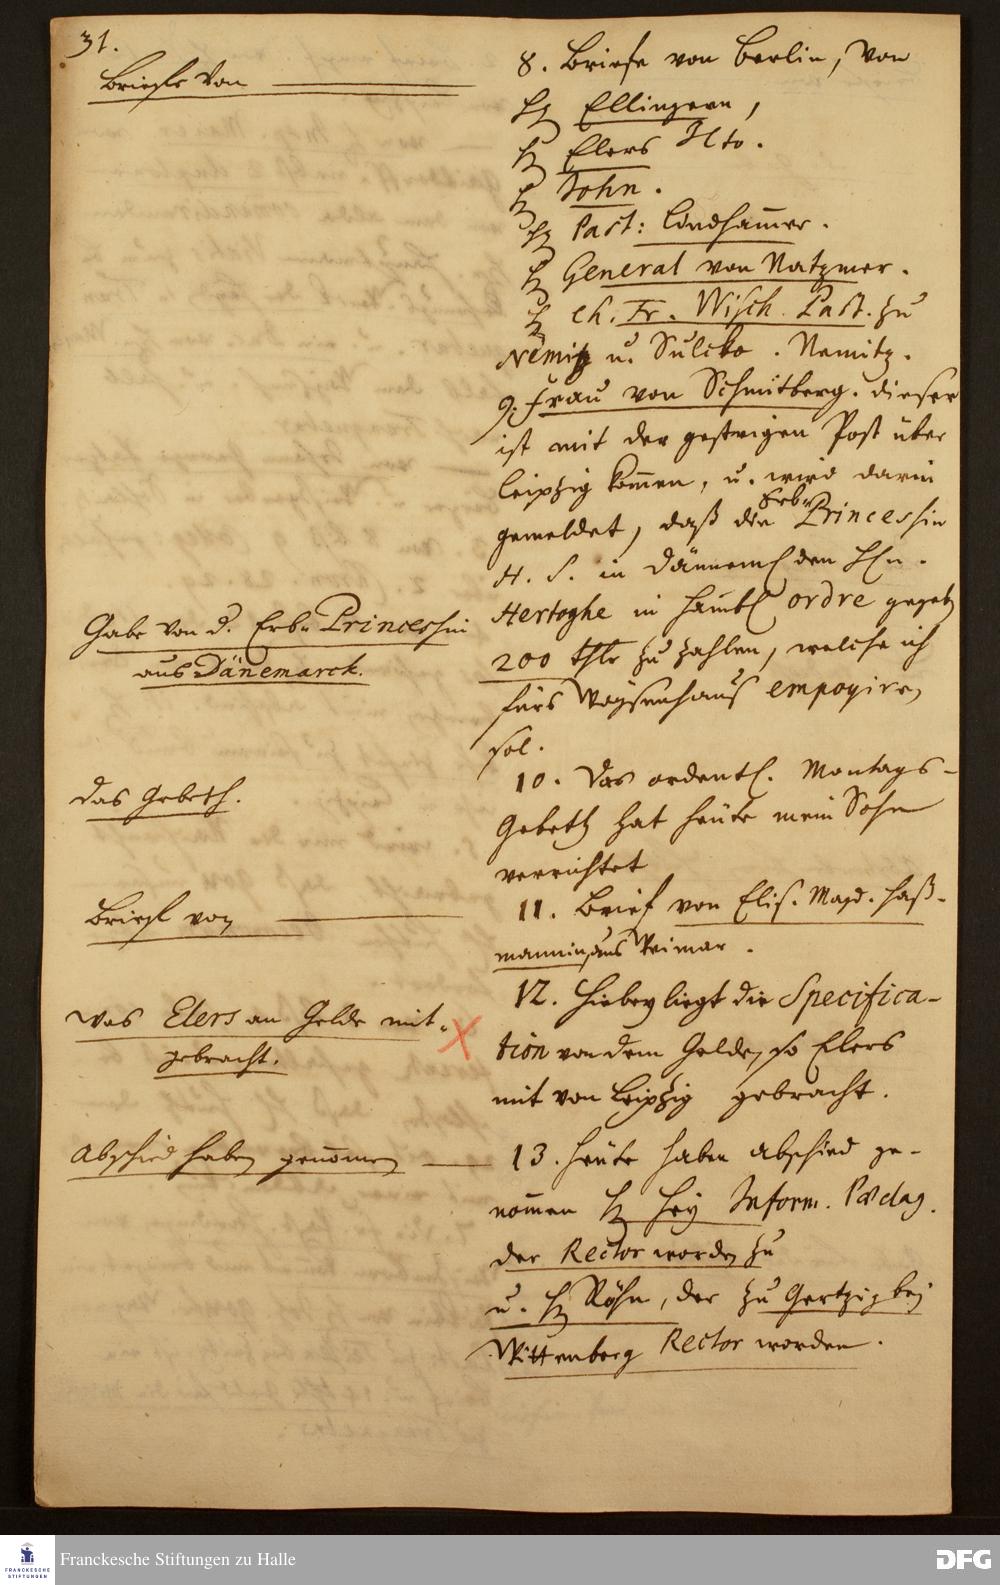 31.
Briefe von
8. Briefe von Berlin, von
H. Ellingern,
H. Elers
H. John.
H. Past: Lindhamer.
H. General von Natzmer.
H. Ch. Fr. Wisch. Past. zu
Nemitz u. Sulcko. Nemitz.
9. Frau von Schmitberg. dieser
ist mit der gestrigen Post über
Leipzig kommen, u. wird darin
gemeldet, daß die Erb-Princessin
H. S. in Dännem. den H.
Hertoghe in Hamb. ordre gegeben
200 thlr zu zahlen, welche ich
Gabe von d. Erb-Princessin
aus Dänemarck.
fürs Waysenhaus
sol.
10. Das ordentl. Montags-
Gebeth hat heute mein Sohn
verrichtet
das Gebeth.
11. Brief von Elis. Magd. Haß-
mannin, aus Weimar.
Brief von
12. Hiebey liegt die Specifica-
tion von dem Gelde, so Elers
mit von Leipzig gebracht.
Was Elers an Gelde mit-
gebracht.
13. Heute haben Abschied ge-
nommen H. Hey Inform. Paedag.
der Rector worden zu
u. H. Röhn, der zu Gertzig bey
Wittenberg Rector worden.
Abschied haben genommen
Franckesche Stiftungen zu Halle
FRANCKESCHE
STIFTUNGEN
DFG